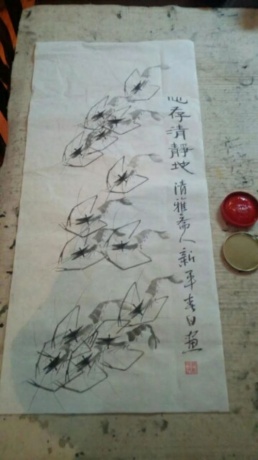 心存清静地
清雅斋人新平春日画